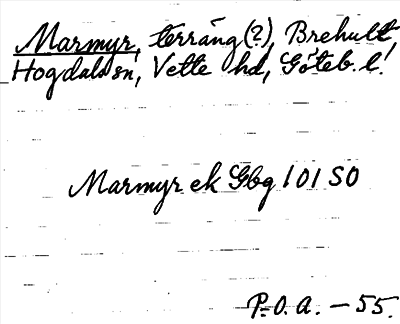 Marmyr, terräng(?), Brehult,
Hogdals sn, Vette hd, Göteb. l.
Marmyr ek Gbg 101 SO
P.O.A. – 55.